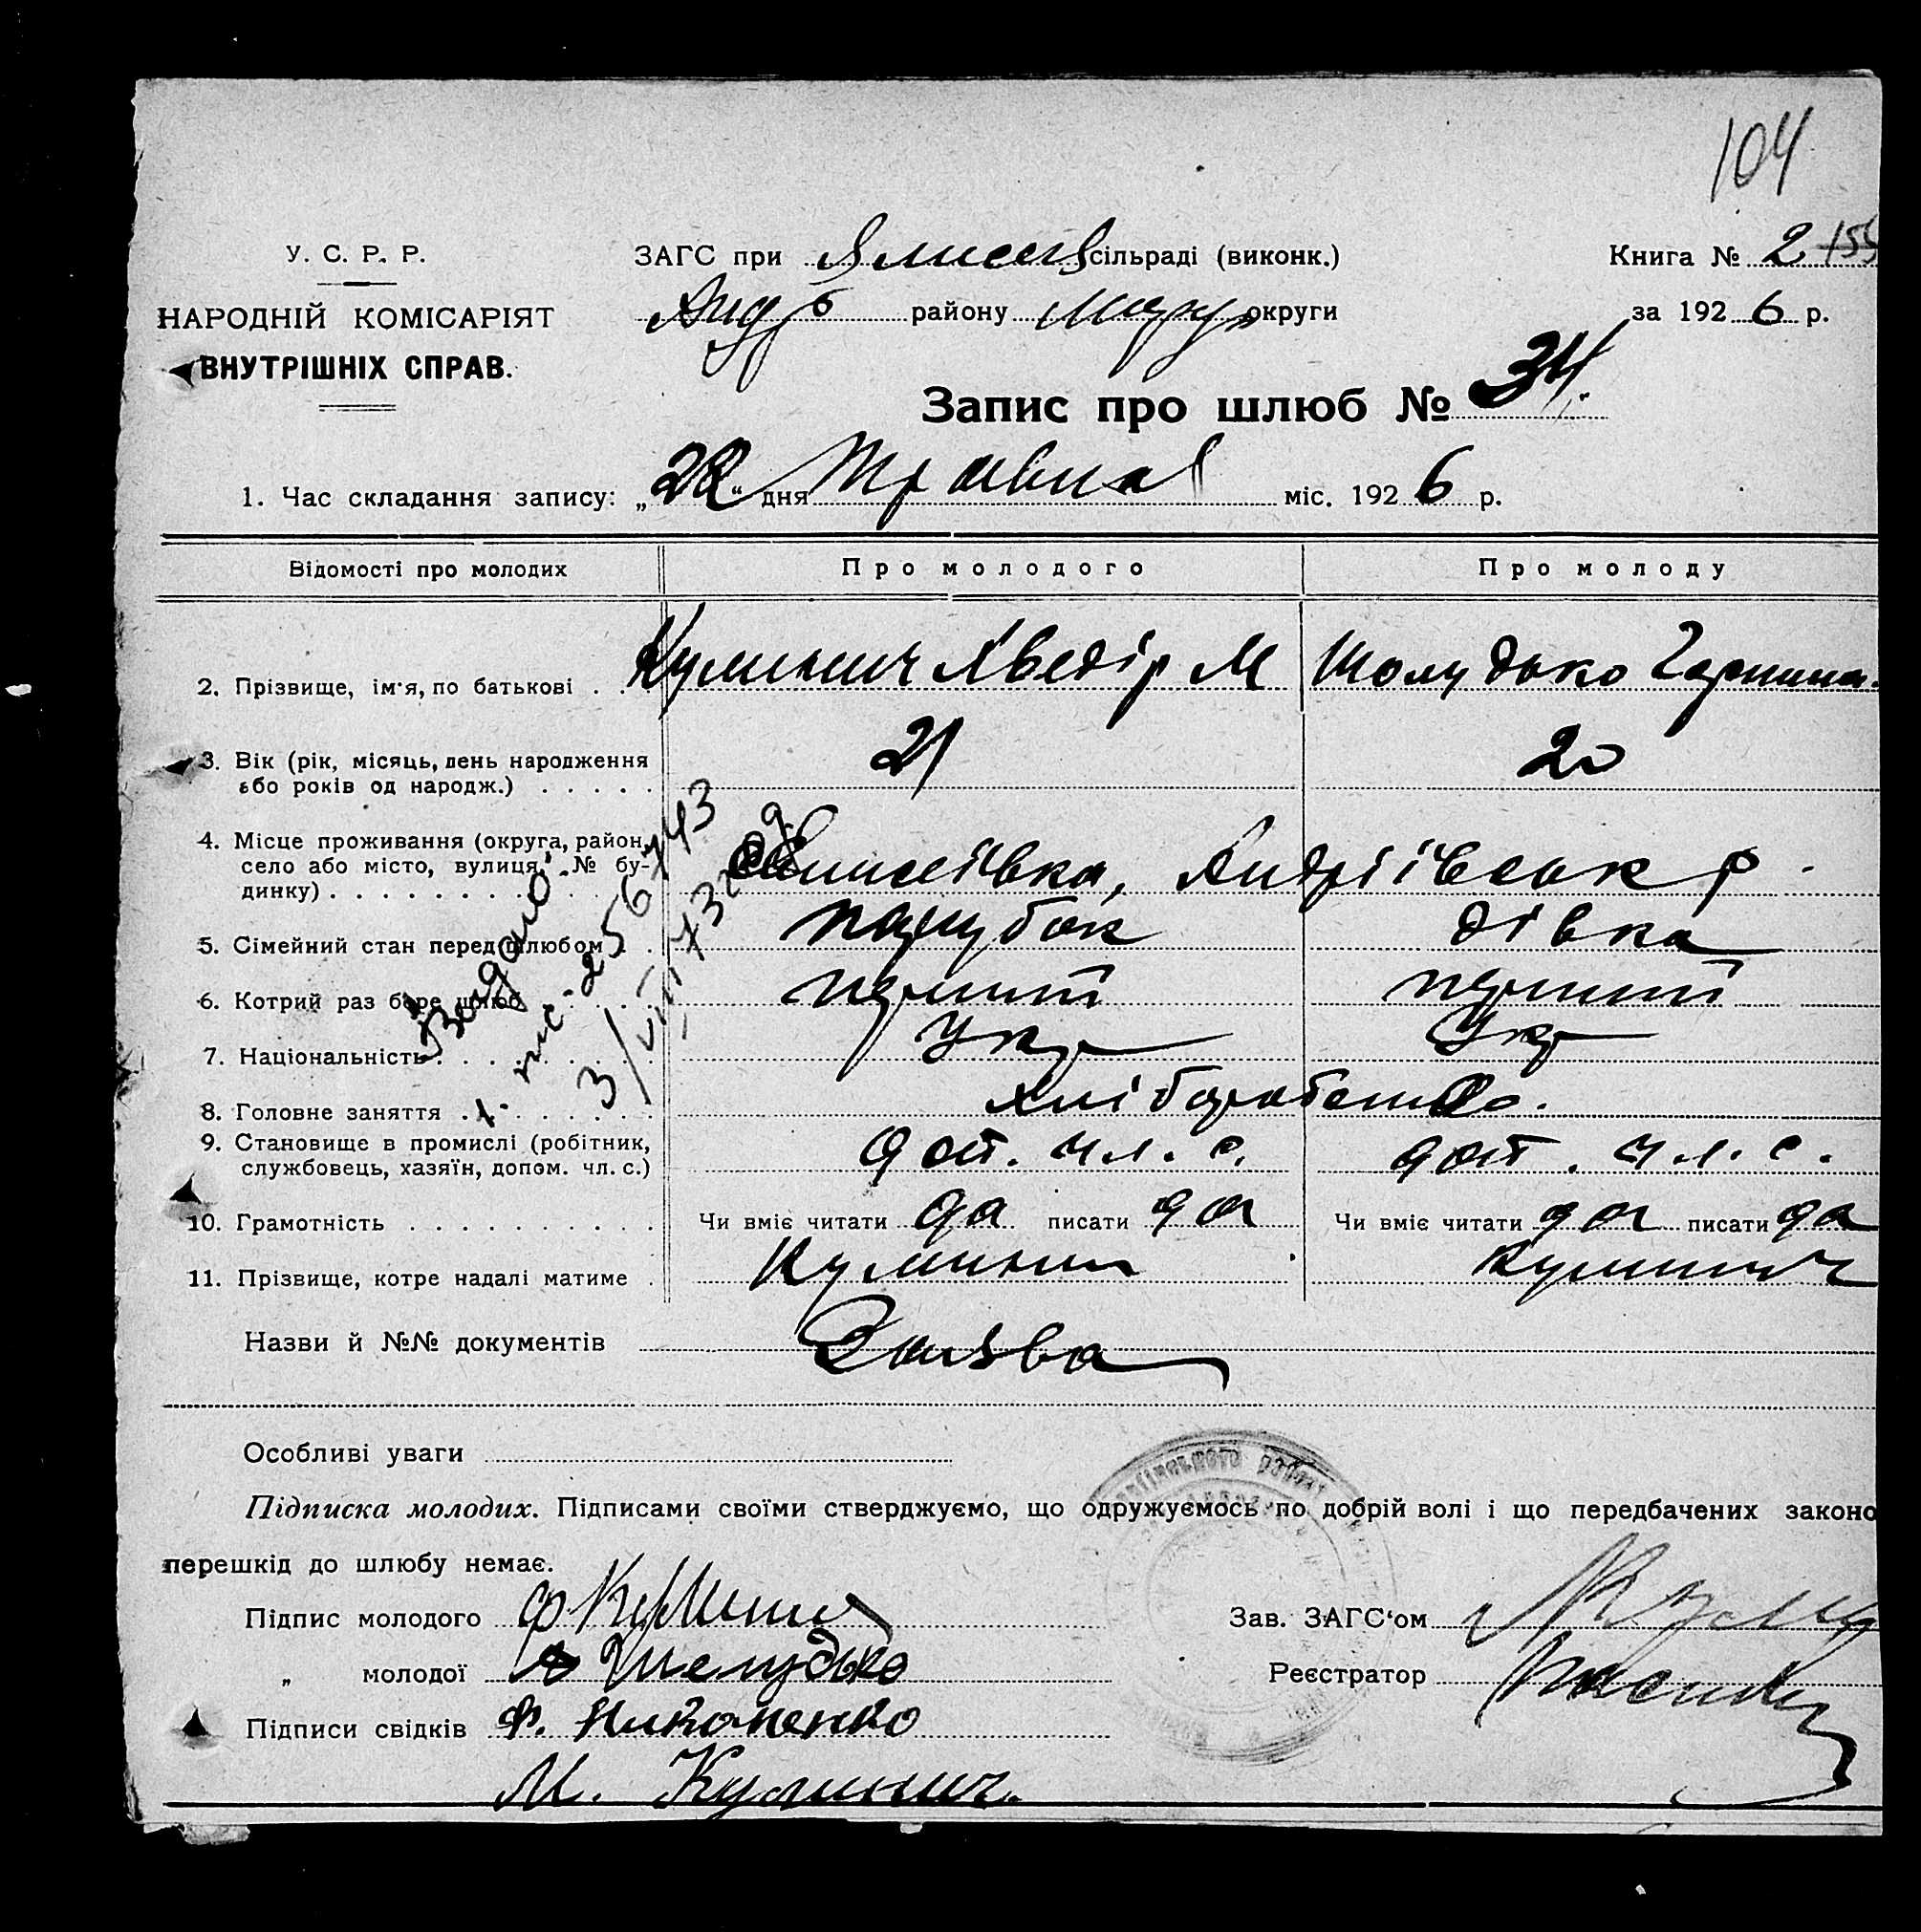 104
У. С. Р. Р.
НАРОДНІЙ КОМІСАРІЯТ
ВНУТРІШНІХ СПРАВ.
ЗАГС при Єлисеїв сільраді (виконк.)
Андр района району Мар округи
Книга № 2 155
за 1926 р.
Запис про шлюб № 34.
1. Час складання запису: „22“ дня Травня міс. 1926 р.
Відомості про молодих Про молодого Про молоду
2. Прізвище, ім'я, по батькові . . Кулинич Хведір М Шолудько
3. Вік (рік, місяць, день народження 21 20
або років од народж.) . . . . .
4. Місце проживання (округа, район,
село або місто, вулиця, № бу- Елисеівка, Андріівськ р.
динку) . . . . . . . . . . .
5. Сімейний стан перед шлюбом . . парубок дівка
6. Котрий раз бере шлюб перший перший
7. Національність . . . . . . . Укр Укр
8. Головне заняття . . . . . . . Хліборобство.
9. Становище в промислі (робітник, доп. чл. с. доп. чл. с.
службовець, хазяїн, допом. чл. с.)
10. Грамотність . . . . . . . . . . Чи вміє читати да писати да Чи вміє читати да писати да
11. Прізвище, котре надалі матиме . Кулинич Кулинич
Видано
т. пс. 256743
3/VIII 73
Назви й №№ документів Заява
Особливі уваги
Підписка молодих. Підписами своїми стверджуємо, що одружуємось по добрій волі і що передбачених законо
перешкід до шлюбу немає.
Підпис молодого Ф Кулинич Зав. ЗАГС'ом
„ молодої Шелудько Реєстратор
Підписи свідків Ф. Никоненко
М. Кулинич.